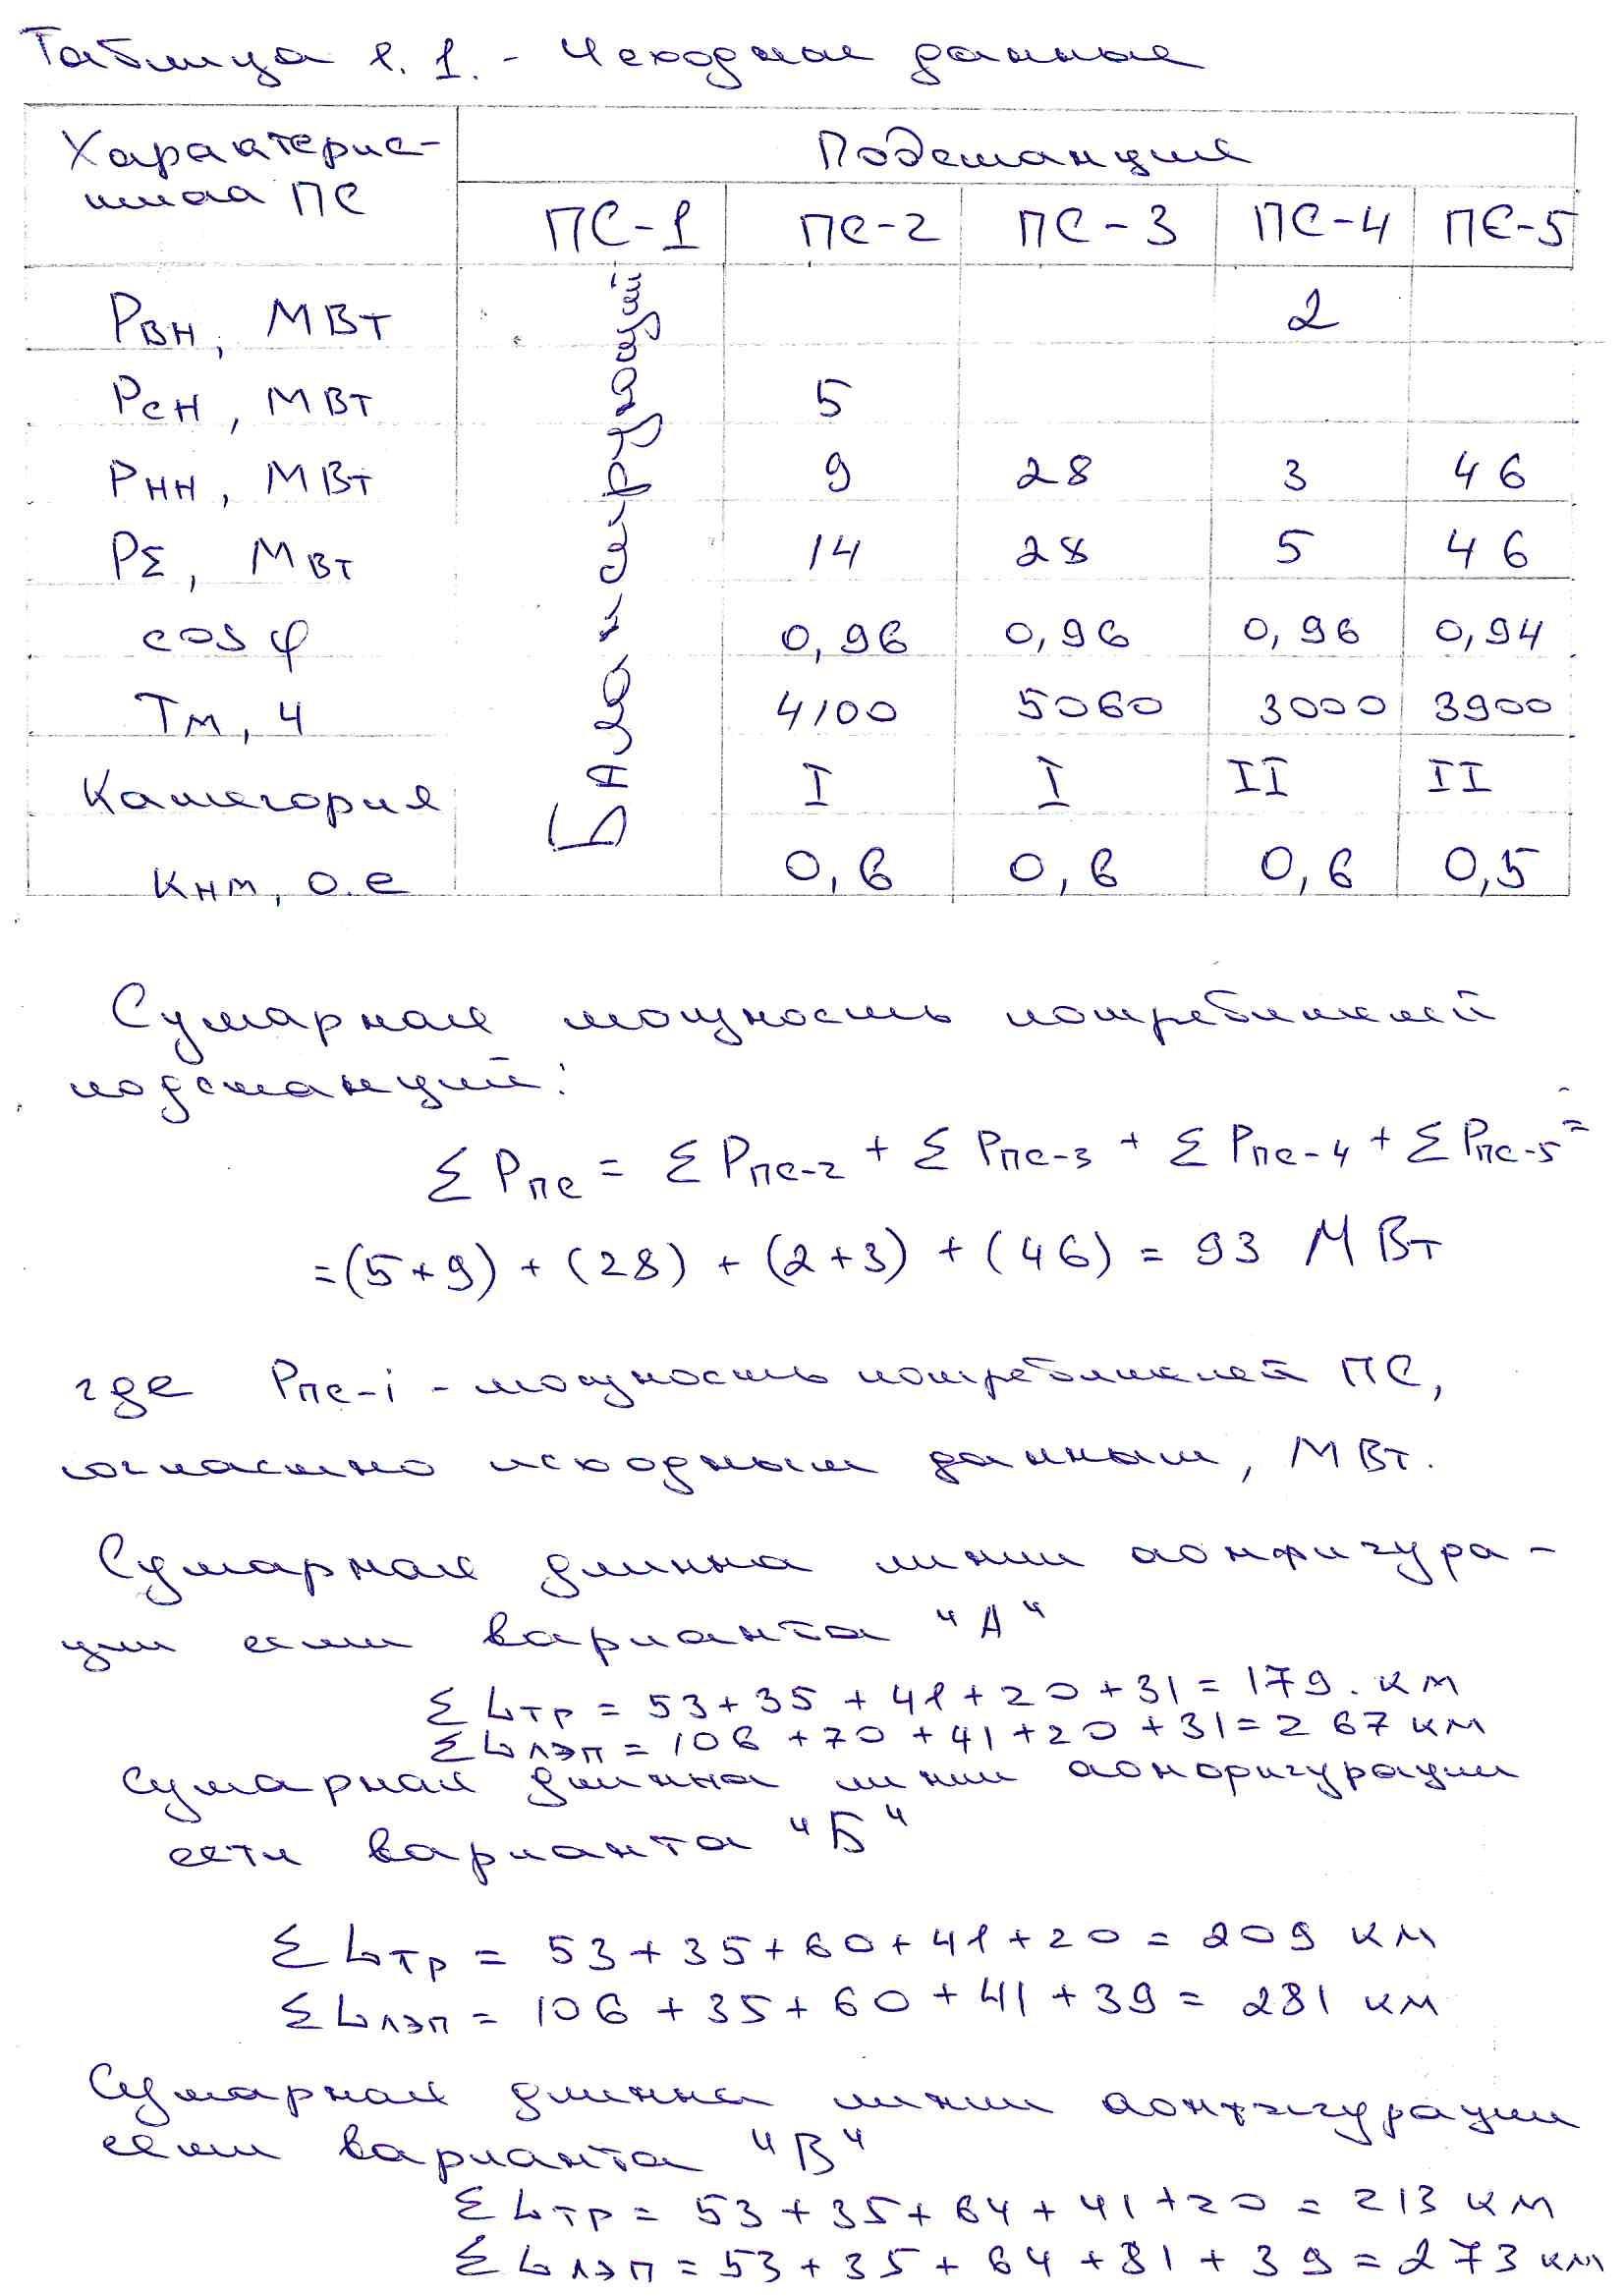 Таблица 1.1. - Исходные данные
Характерис-
тика ПС
Подстанция
ПС-1 ПС-2 ПС-3 ПС-4 ПС-5
Балансирующий
Рвн, МВт 2
Рсн, МВт 5
Рнн, МВт 9 28 3 46
РΣ, МВт 14 28 5 46
cos φ 0,96 0,96 0,96 0,94
Тм, ч 4100 5060 3000 3900
Категория I I II II
Кнм, о.е 0,6 0,6 0,6 0,5
Сумарная мощность потребителей
подстанций:
Σ Рпс = Σ Рпс-2 + Σ Рпс-3 + Σ Рпс-4 + Σ Рпс-5 =
=(5+9) + (28) + (2+3) + (46) = 93 МВт
где Рпс-i - мощность потребителей ПС,
согласно исходным данным, МВт.
Сумарная длинна линии конфигура-
ции сети варианта "А"
Σ Lтр = 53+35+41+20+31=179. км
Σ Lлэп = 106+70+41+20+31=267 км
Сумарная длинна линии конфигурации
сети варианта "Б"
Σ Lтр = 53+35+60+41+20 = 209 км
Σ Lлэп = 106+35+60+41+39 = 281 км
Сумарная длинна линии конфигурации
сети варианта "В"
Σ Lтр = 53+35+64+41+20 = 213 км
Σ Lлэп = 53+35+64+81+39 = 273 км